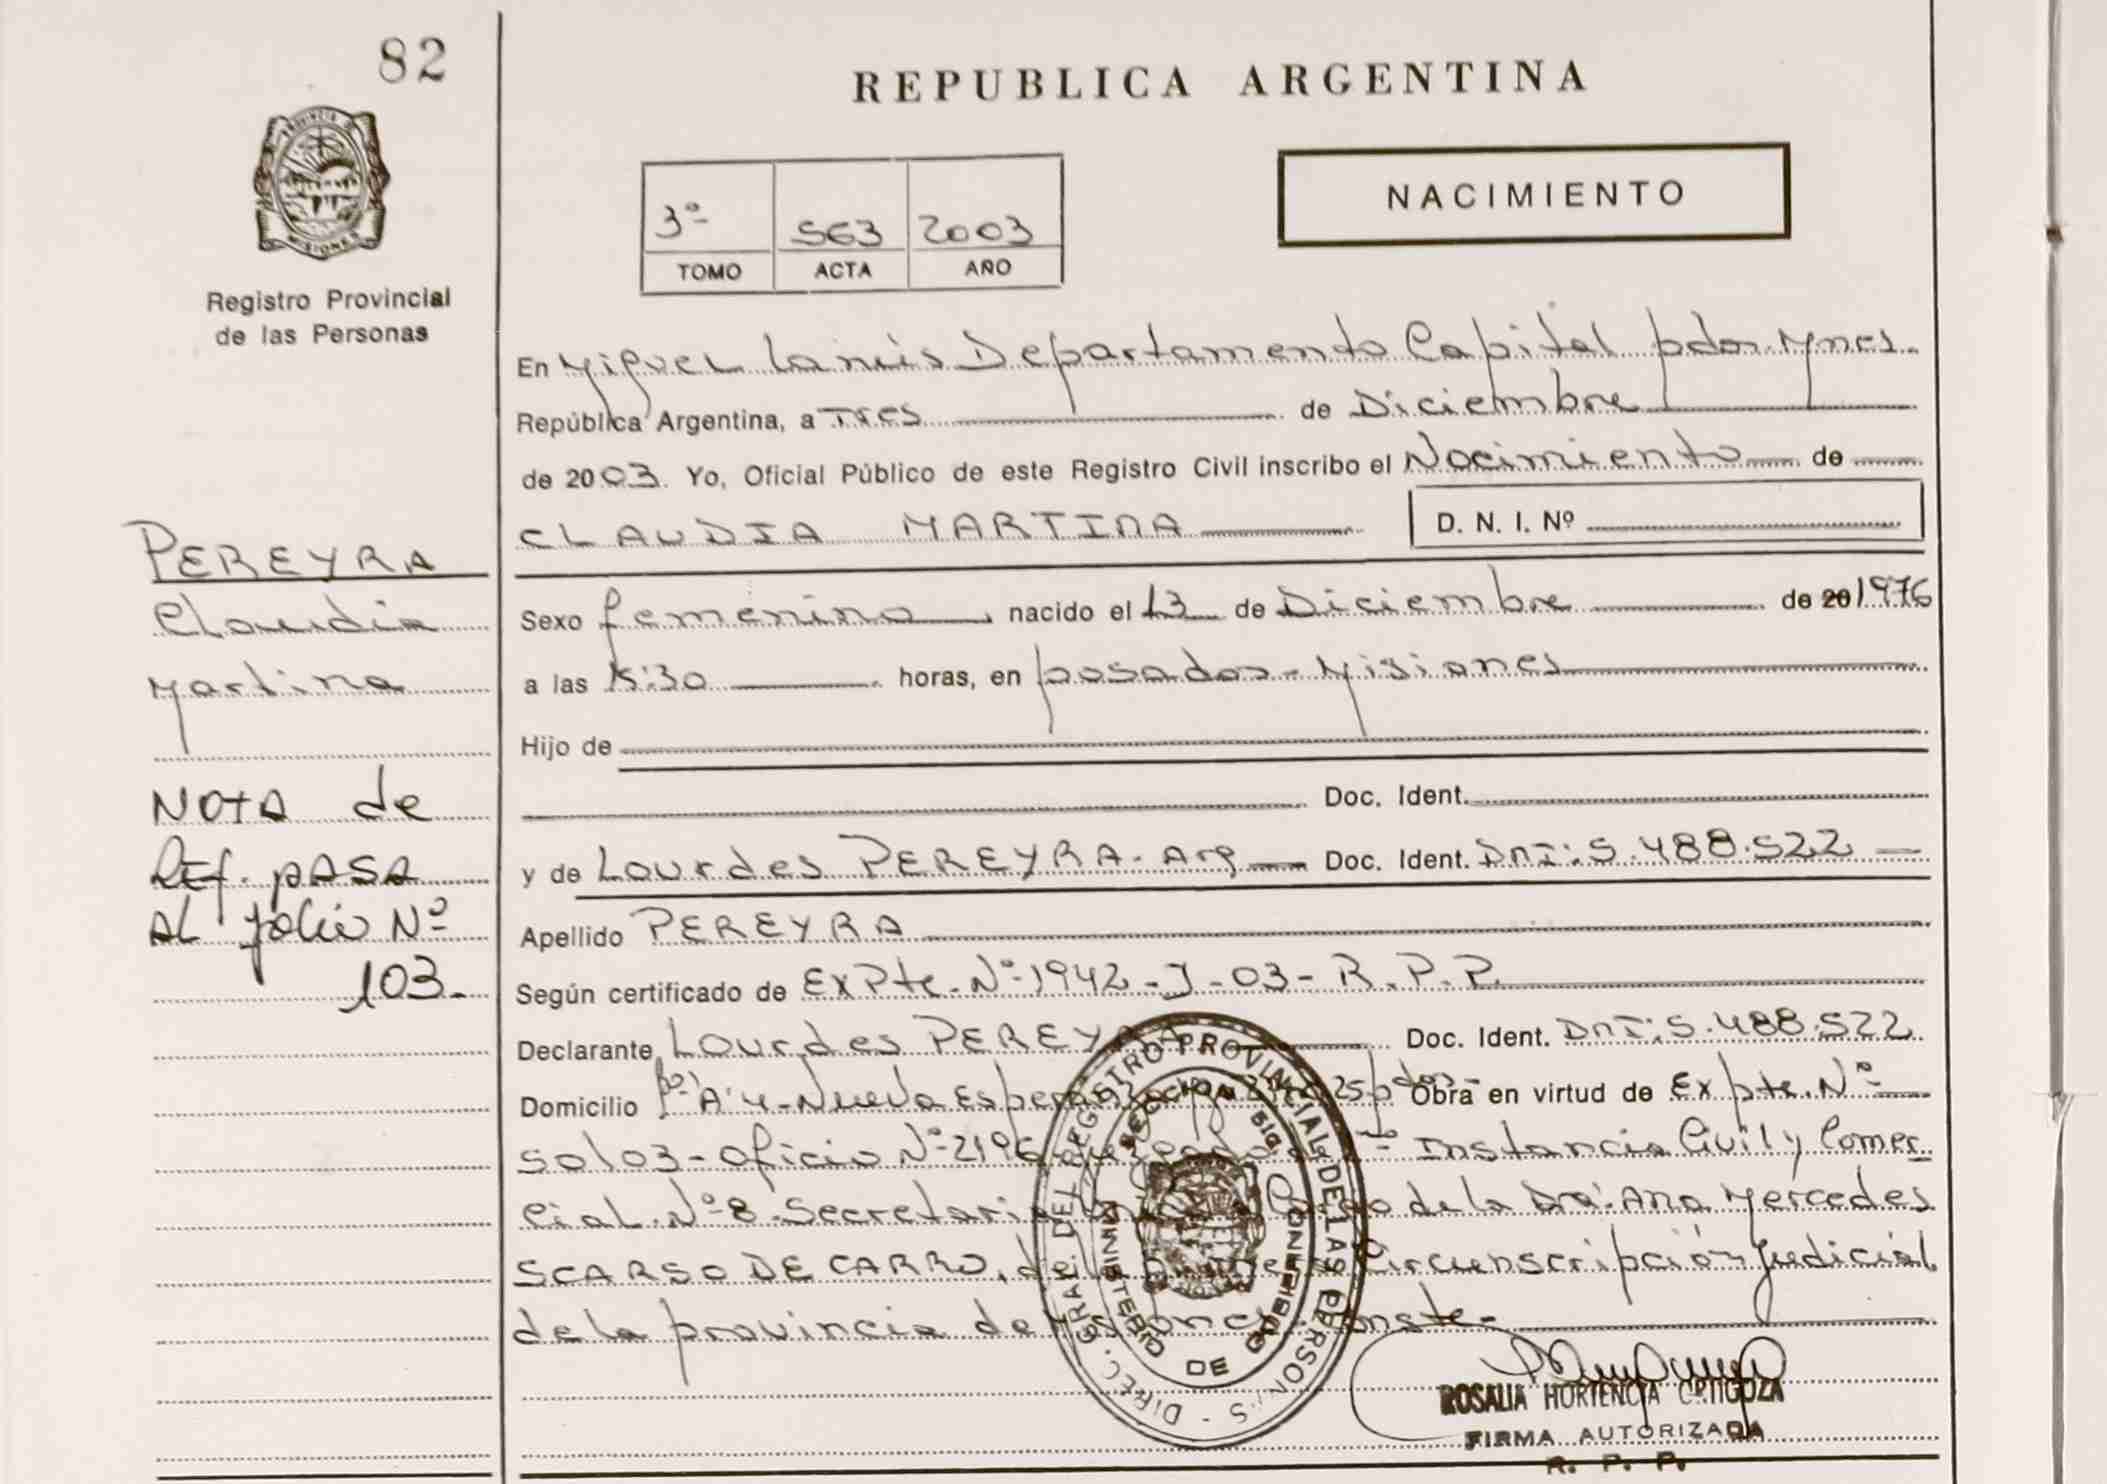 82
REPUBLICA ARGENTINA
PROVINCIA DE
MISIONES
Registro Provincial
de las Personas
NACIMIENTO
3º 563 2003
TOMO ACTA AÑO
En Miguel Lanús Departamento Capital pdas. Mnes.
República Argentina, a Tres de Diciembre
de 2003. Yo, Oficial Público de este Registro Civil inscribo el Nacimiento de
CLAUDIA MARTINA D. N. I. Nº
PEREYRA
Claudia
Martina
Sexo femenino nacido el 13 de Diciembre de 20 1976
a las 15:30 horas, en posadas - Misiones
Hijo de
Doc. Ident.
y de Lourdes PEREYRA - Arg Doc. Ident. DNI: 5.488.522
Apellido PEREYRA
Según certificado de Expte. Nº 1942 - J - 03 - R. P. P.
Declarante Lourdes PEREYRA Doc. Ident. DNI: 5.488.522
Domicilio "A" 4 - Nueva Obra en virtud de Expte. Nº
50103 - Oficio Nº 2196 Instancia Civil y Comer
cial Nº 8 Secretaria de la Dra. Ana Mercedes
SCARSO DE CARRO, Circunscripción Judicial
de la provincia de
NOTA de
Ref. pASA
AL folio Nº
103.
DIREC. GRAL. DEL REGISTRO PROVINCIAL DE LAS PERSONAS
MINISTERIO DE GOBIERNO
ROSALIA HORTENCIA ORTIGOZA
FIRMA AUTORIZADA
R. P. P.